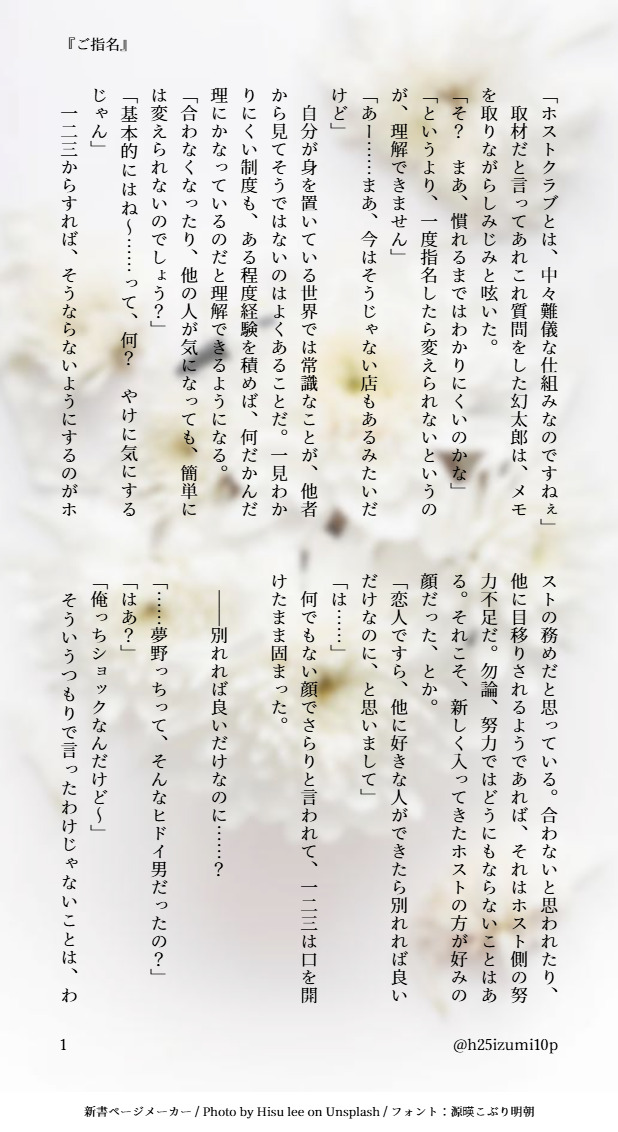 『ご指名』
「ホストクラブとは、中々難儀な仕組みなのですねぇ」
　取材だと言ってあれこれ質問をした幻太郎は、メモ
を取りながらしみじみと呟いた。
「そ？　まあ、慣れるまではわかりにくいのかな」
「というより、一度指名したら変えられないというの
が、理解できません」
「あー……まあ、今はそうじゃない店もあるみたいだ
けど」
　自分が身を置いている世界では常識なことが、他者
から見てそうではないのはよくあることだ。一見わか
りにくい制度も、ある程度経験を積めば、何だかんだ
理にかなっているのだと理解できるようになる。
「合わなくなったり、他の人が気になっても、簡単に
は変えられないのでしょう？」
「基本的にはね～……って、何？　やけに気にする
じゃん」
　一二三からすれば、そうならないようにするのがホ
ストの務めだと思っている。合わないと思われたり、
他に目移りされるようであれば、それはホスト側の努
力不足だ。勿論、努力ではどうにもならないことはあ
る。それこそ、新しく入ってきたホストの方が好みの
顔だった、とか。
「恋人ですら、他に好きな人ができたら別れれば良い
だけなのに、と思いまして」
「は……」
　何でもない顔でさらりと言われて、一二三は口を開
けたまま固まった。
――別れれば良いだけなのに……？
「……夢野っちって、そんなヒドイ男だったの？」
「はあ？」
「俺っちショックなんだけど～」
　そういうつもりで言ったわけじゃないことは、わ
1
@h25izumi10p
新書ページメーカー / Photo by Hisu lee on Unsplash / フォント：源暎こぶり明朝